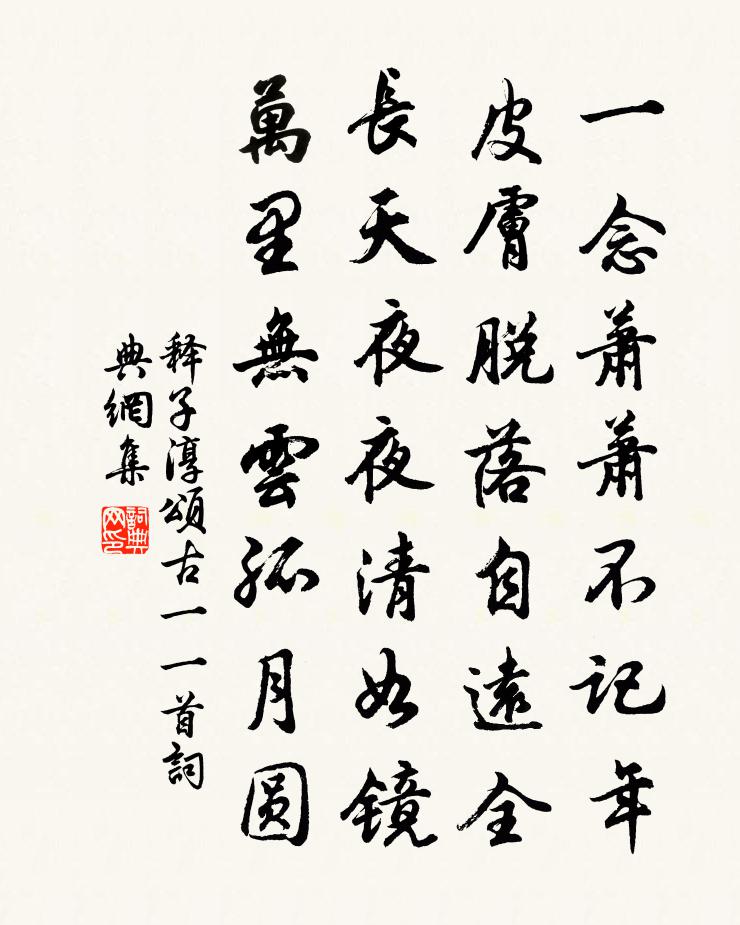 一念蕭蕭不記年
皮膚脫落自遠全
長天夜夜清如鏡
萬里無雲孤月圆
释子淳頌古一一首詞
典網集
詞典
网印